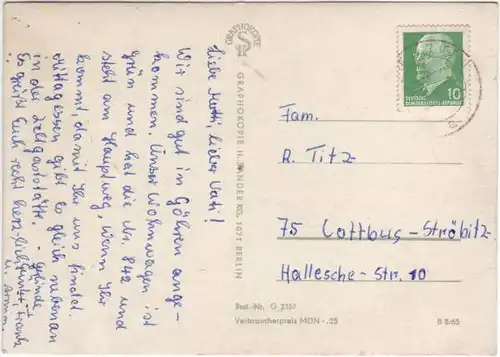 Liebe Mutti, lieber Vati!
Wir sind gut in Göhren ange-
kommen. Unser Wohnwagen ist
grün und hat die Nr. 842 und
steht am Hauptweg, wenn Ihr
kommt, damit Ihr uns findet.
Mittagessen gibt es gleich nebenan
in der Zeltgaststätte. -
Es grüßt Euch recht herzlich
GRAPHOKOPIE
GRAPHOKOPIE H. SANDER KG, 1071 BERLIN
10
DEUTSCHE
DEMOKRATISCHE REPUBLIK
Fam.
R. Titz
75 Cottbus-Ströbitz
Hallesche-Str. 10
Best.-Nr. G 3357
Verbraucherpreis MDN -,25
B 8/65